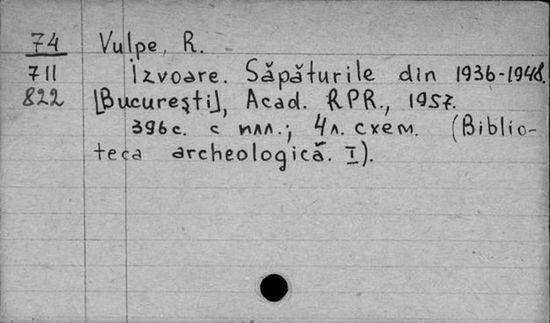 74 Vulpe, R.
711 Izvoare. Săpăturile din 1936-1948.
822 [Bucureşti], Acad. RPR., 1957.
396 с. с илл.; 4 л. схем. (Biblio-
teca archeologică. I).